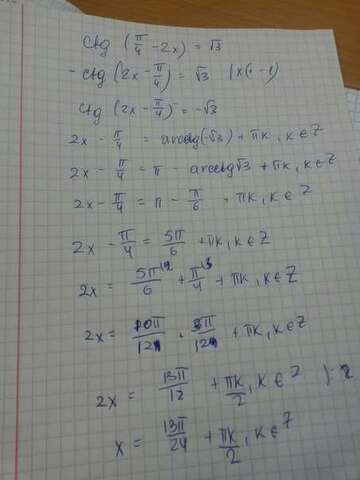 ctg (π/4 - 2x) = √3
- ctg (2x - π/4) = √3 | x(-1)
ctg (2x - π/4) = -√3
2x - π/4 = arcctg(-√3) + πk, k ∈ Z
2x - π/4 = π - arcctg√3 + πk, k ∈ Z
2x - π/4 = π - π/6 + πk, k ∈ Z
2x - π/4 = 5π/6 + πk, k ∈ Z
2x = 5π/6 + π/4 + πk, k ∈ Z
2x = 10π/12 + 3π/12 + πk, k ∈ Z
2x = 13π/12 + πk/2, k ∈ Z ) : 2
x = 13π/24 + πk/2, k ∈ Z